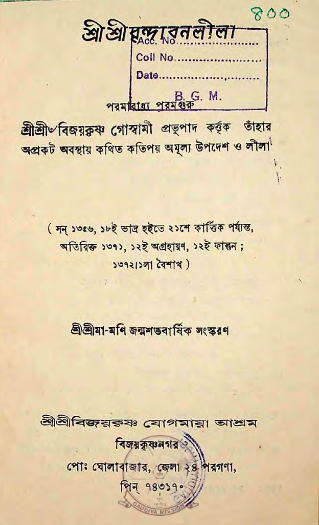 800
শ্রীশ্রীবৃন্দাবনলীলা
Acc. No
Coll No
Date
B. G. M.
পরমারাধ্য পরমগুরু
শ্রীশ্রী৺বিজয়কৃষ্ণ গোস্বামী প্রভুপাদ কর্ত্তৃক তাঁহার
অপ্রকট অবস্থায় কথিত কতিপয় অমূল্য উপদেশ ও লীলা
( সন্ ১৩৫৬, ১৮ই ভাদ্র হইতে ২১শে কার্ত্তিক পর্য্যন্ত,
অতিরিক্ত ১৩৭১, ১২ই অগ্রহায়ণ, ১২ই ফাল্গুন ;
১৩৭২।১লা বৈশাখ )
শ্রীশ্রীমা-মণি জন্মশতবার্ষিক সংস্করণ
শ্রীশ্রীবিজয়কৃষ্ণ যোগমায়া আশ্রম
বিজয়কৃষ্ণনগর
পোঃ ঘোলাবাজার, জেলা ২৪ পরগণা,
পিন্ ৭৪৩১৭০